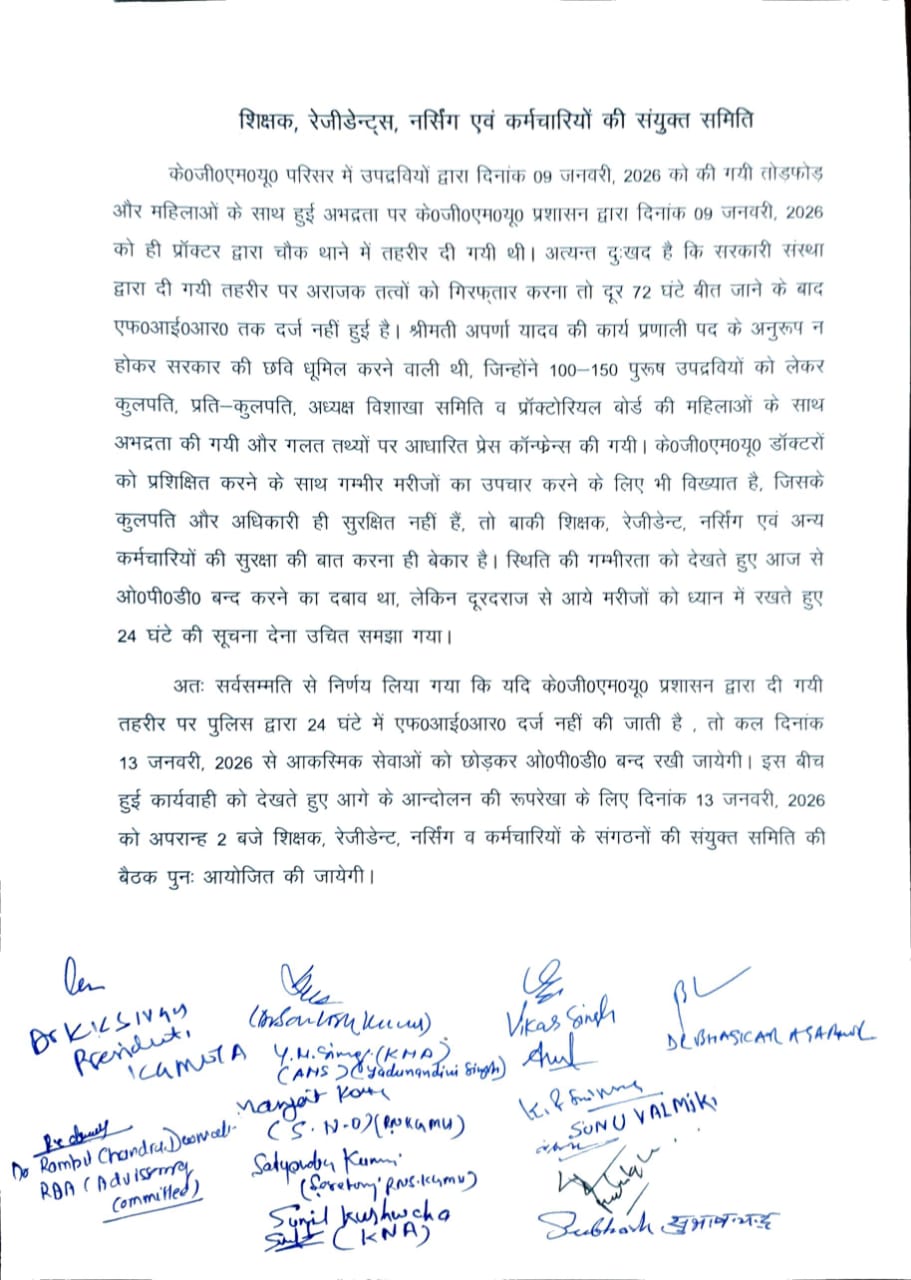 शिक्षक, रेजीडेन्ट्स, नर्सिंग एवं कर्मचारियों की संयुक्त समिति
के0जी0एम0यू0 परिसर में उपद्रवियों द्वारा दिनांक 09 जनवरी, 2026 को की गयी तोड़फोड़
और महिलाओं के साथ हुई अभद्रता पर के0जी0एम0यू0 प्रशासन द्वारा दिनांक 09 जनवरी, 2026
को ही प्रॉक्टर द्वारा चौक थाने में तहरीर दी गयी थी। अत्यन्त दुःखद है कि सरकारी संस्था
द्वारा दी गयी तहरीर पर अराजक तत्वों को गिरफ्तार करना तो दूर 72 घंटे बीत जाने के बाद
एफ0आई0आर0 तक दर्ज नहीं हुई है। श्रीमती अपर्णा यादव की कार्य प्रणाली पद के अनुरूप न
होकर सरकार की छवि धूमिल करने वाली थी, जिन्होंने 100–150 पुरूष उपद्रवियों को लेकर
कुलपति, प्रति–कुलपति, अध्यक्ष विशाखा समिति व प्रॉक्टोरियल बोर्ड की महिलाओं के साथ
अभद्रता की गयी और गलत तथ्यों पर आधारित प्रेस कॉन्फेन्स की गयी। के0जी0एम0यू0 डॉक्टरों
को प्रशिक्षित करने के साथ गम्भीर मरीजों का उपचार करने के लिए भी विख्यात है, जिसके
कुलपति और अधिकारी ही सुरक्षित नहीं हैं, तो बाकी शिक्षक, रेजीडेन्ट, नर्सिंग एवं अन्य
कर्मचारियों की सुरक्षा की बात करना ही बेकार है। स्थिति की गम्भीरता को देखते हुए आज से
ओ0पी0डी0 बन्द करने का दबाव था, लेकिन दूरदराज से आये मरीजों को ध्यान में रखते हुए
24 घंटे की सूचना देना उचित समझा गया।
अतः सर्वसम्मति से निर्णय लिया गया कि यदि के0जी0एम0यू0 प्रशासन द्वारा दी गयी
तहरीर पर पुलिस द्वारा 24 घंटे में एफ0आई0आर0 दर्ज नहीं की जाती है , तो कल दिनांक
13 जनवरी, 2026 से आकस्मिक सेवाओं को छोड़कर ओ0पी0डी0 बन्द रखी जायेगी। इस बीच
हुई कार्यवाही को देखते हुए आगे के आन्दोलन की रूपरेखा के लिए दिनांक 13 जनवरी, 2026
को अपरान्ह 2 बजे शिक्षक, रेजीडेन्ट, नर्सिंग व कर्मचारियों के संगठनों की संयुक्त समिति की
बैठक पुनः आयोजित की जायेगी।
Dr K.K SINGH
President,
KGMUTA
(Dr Santosh Kumar)
Y.N. Singh (KNA)
(ANS) (Yadunandini Singh)
Manjeet Kaur
(S.N.O) (RNS KGMU)
Satyendra Kumar
(Secretary RNS. KGMU)
Sunil Kushwaha
(KNA)
Vikas Singh
Dr BHASKAR AGARWAL
SONU VALMIKI
Dr Rambit Chandra
RDA (Advisory
Committed)
Subhash सुभाष चन्द्र